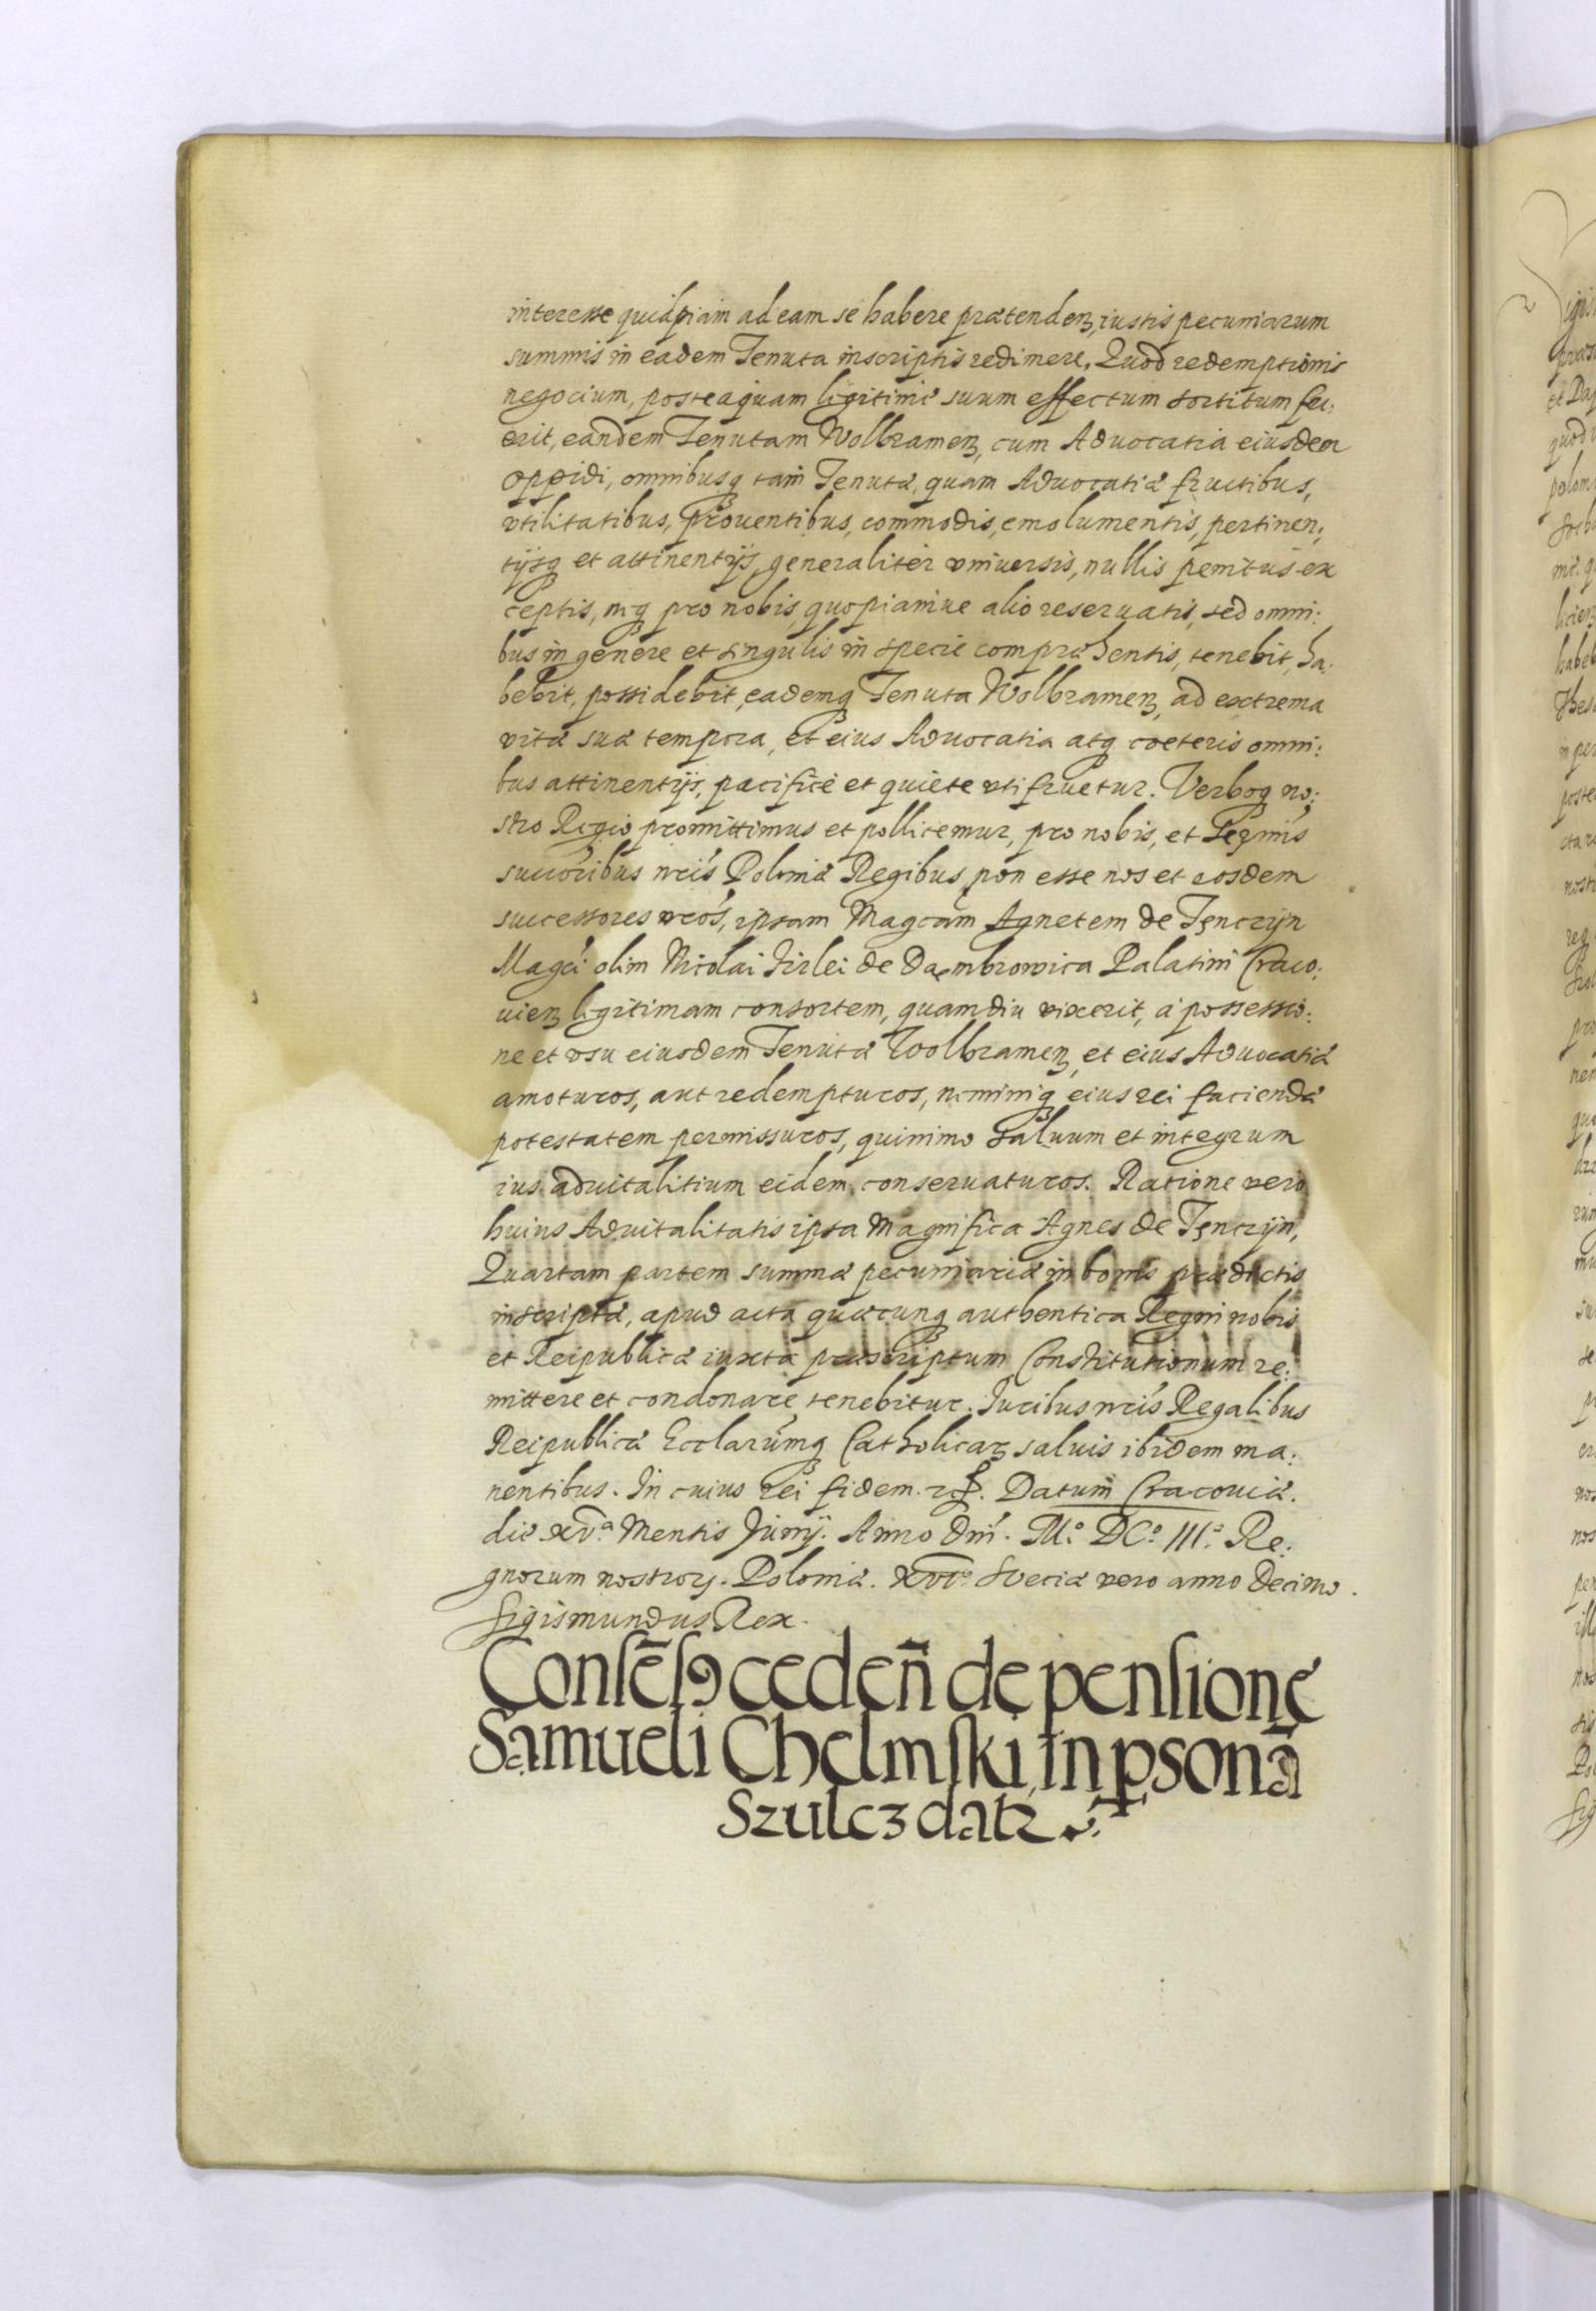 interesse quidpiam ad eam se habere prætendenꝫ, iustis pecuniarum
summis in eadem Tenuta inscriptis redimere. Quod redemptionis
negocium, posteaquam legitime suum effectum sortitum fu:
erit, eandem Tenutam Wolbramenꝫ, cum Aduocatia eiusdem
oppidi, omnibusqꝫ tam Tenutæ, quam Aduocatiæ fructibus,
vtilitatibus, prouentibus, commodis, emolumentis, pertinen:
tijsqꝫ et attinentijs, generaliter vniuersis, nullis penitus ex
ceptis, neqꝫ pro nobis, quopiamue alio reseruatis, sed omni:
bus in genere et singulis in specie compræhensis, tenebit, ha:
bebit, possidebit, eademqꝫ Tenuta Wolbramenꝫ, ad extrema
vitæ suæ tempora, et eius Aduocatia atqꝫ coeteris omni:
bus attinentijs, pacificè et quiete vti fruetur. Verboqꝫ no:
stro Regio promittimus et pollicemur, pro nobis, et Sermis
succoribus nris Poloniæ Regibus, non esse nos et eosdem
successores nros, ipsam Magcam Agnetem de Tęnczyn
Magci olim Nicolai Firlei de Dąmbrowica Palatini Craco:
uienꝫ legitimam consortem, quamdiu vixerit, à possessio:
ne et vsu eiusdem Tenutæ Wolbramenꝫ, et eius Aduocatiæ
amoturos, aut redempturos, neminiqꝫ eius rei faciendæ
potestatem permissuros, quinimo saluum et integrum
ius aduitalitium eidem conseruaturos. Ratione vero
huius Aduitalitatis ipsa Magnifica Agnes de Tęnczyn,
Quartam partem summæ pecuniariæ in bonis prædictis
inscriptæ, apud acta quæcunqꝫ authentica Regni nobis
et Reipublicæ iuxta præscriptum Constitutionum re:
mittere et condonare tenebitur. Iuribus nris Regalibus
Reipublicæ Ecclarumqꝫ Catholicarꝫ saluis ibidem ma:
nentibus. In cuius rei fidem. Datum Cracouiæ.
die xvᵃ Mensis Junij. Anno Dni. Mº. DCº. IIIº. Re:
gnorum nostroꝝ. Poloniæ. xviº. Sveciæ vero anno decimo.
Sigismundus Rex.
Consēsꝰ cedeñ de pensione
Samueli Chelmski in ꝑsonā
Szulcz datꝛ